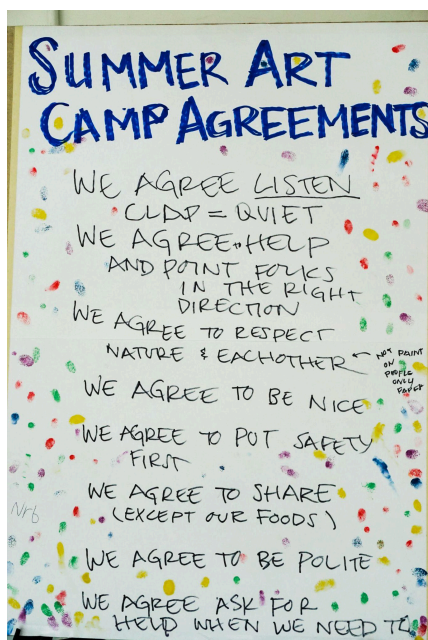 SUMMER ART
CAMP AGREEMENTS
WE AGREE LISTEN
CLAP = QUIET
WE AGREE HELP
AND POINT FOLKS
IN THE RIGHT
DIRECTION
WE AGREE TO RESPECT
NATURE & EACHOTHER
NOT PAINT
ON
PEOPLE
ONLY
PAPER
WE AGREE TO BE NICE
WE AGREE TO PUT SAFETY
FIRST
WE AGREE TO SHARE
(EXCEPT OUR FOODS)
WE AGREE TO BE POLITE
WE AGREE ASK FOR
HELP WHEN WE NEED TO